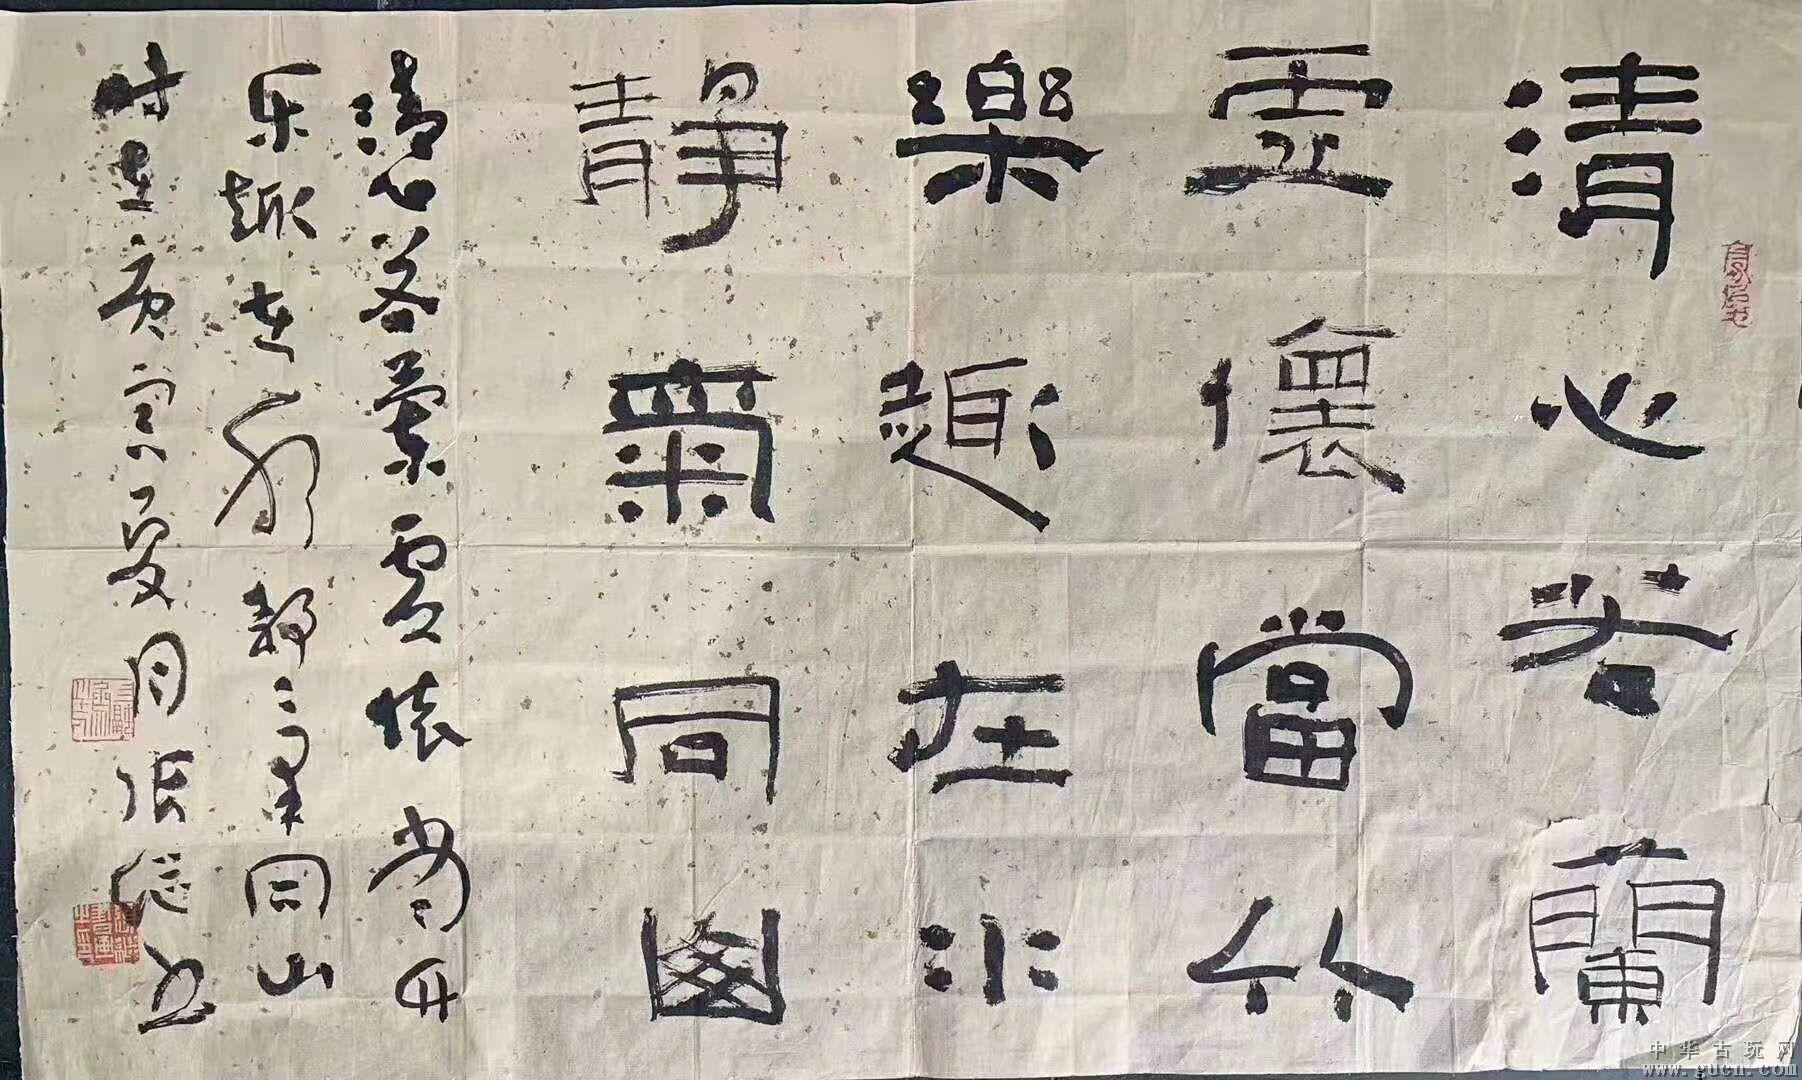 清心若蘭
虛懷當竹
樂趣在水
靜氣同山
清心若蘭虛懷當竹
乐趣在水靜氣同山
时在庚寅夏月张继书
中华古玩网
www.gucn.com